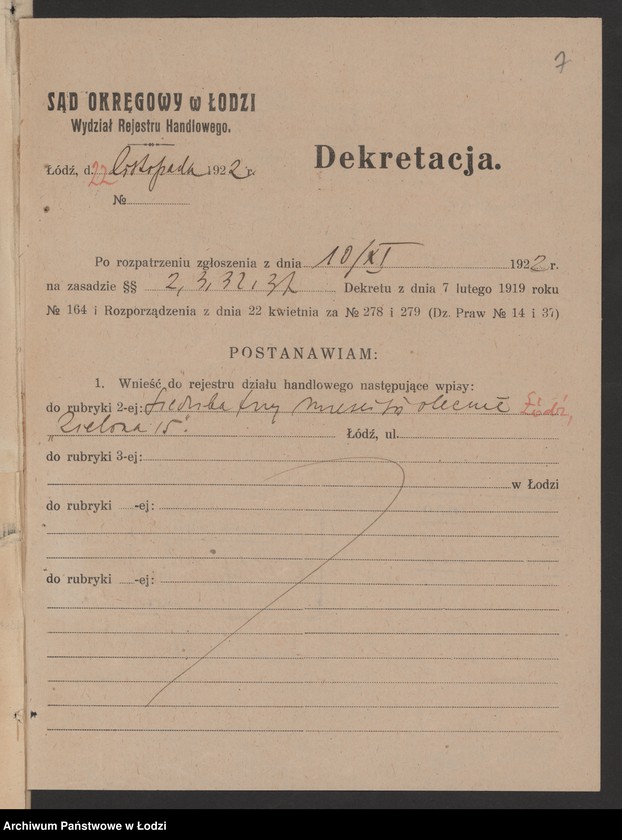 7
SĄD OKRĘGOWY w ŁODZI
Wydział Rejestru Handlowego.
Dekretacja.
Łódź, d. 22 listopada 1922 r.
№
Po rozpatrzeniu zgłoszenia z dnia 10/XI 1922 r.
na zasadzie §§ 2, 3, 32, Dekretu z dnia 7 lutego 1919 roku
№ 164 i Rozporządzenia z dnia 22 kwietnia za № 278 i 279 (Dz. Praw № 14 i 37)
POSTANAWIAM:
1. Wnieść do rejestru działu handlowego następujące wpisy:
do rubryki 2-ej: Siedziba firmy mieści się obecnie Łódź,
"Zielona 15". Łódź, ul.
do rubryki 3-ej:
w Łodzi
do rubryki -ej:
do rubryki -ej:
Archiwum Państwowe w Łodzi